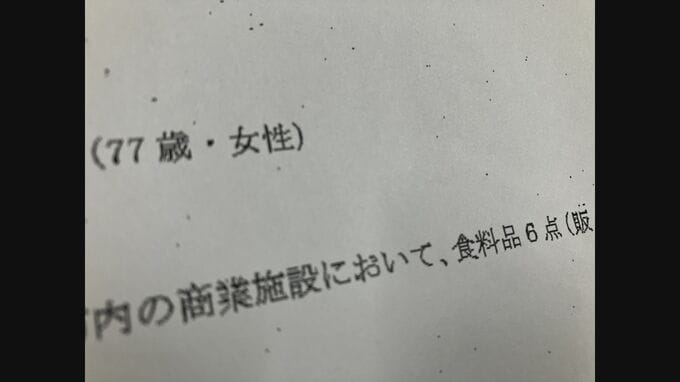 (77歳・女性)
内の商業施設において、食料品6点(販